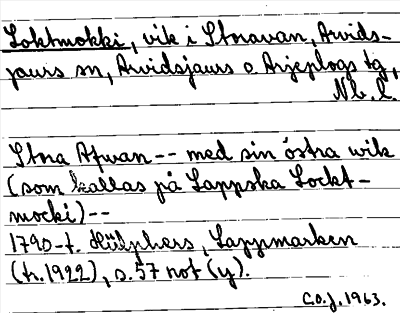 Loktmokki, vik i Storavan, Arvids-
jaurs sn, Arvidsjaurs o. Arjeplogs tg,
Nb. l.
Stora Afwan -- med sin östra wik
(som kallas på Lappska Lockt-
mocki) --
1790-t. Hülphers, Lappmarken
(tr. 1922), s. 57 not (y).
C.O.J. 1963.